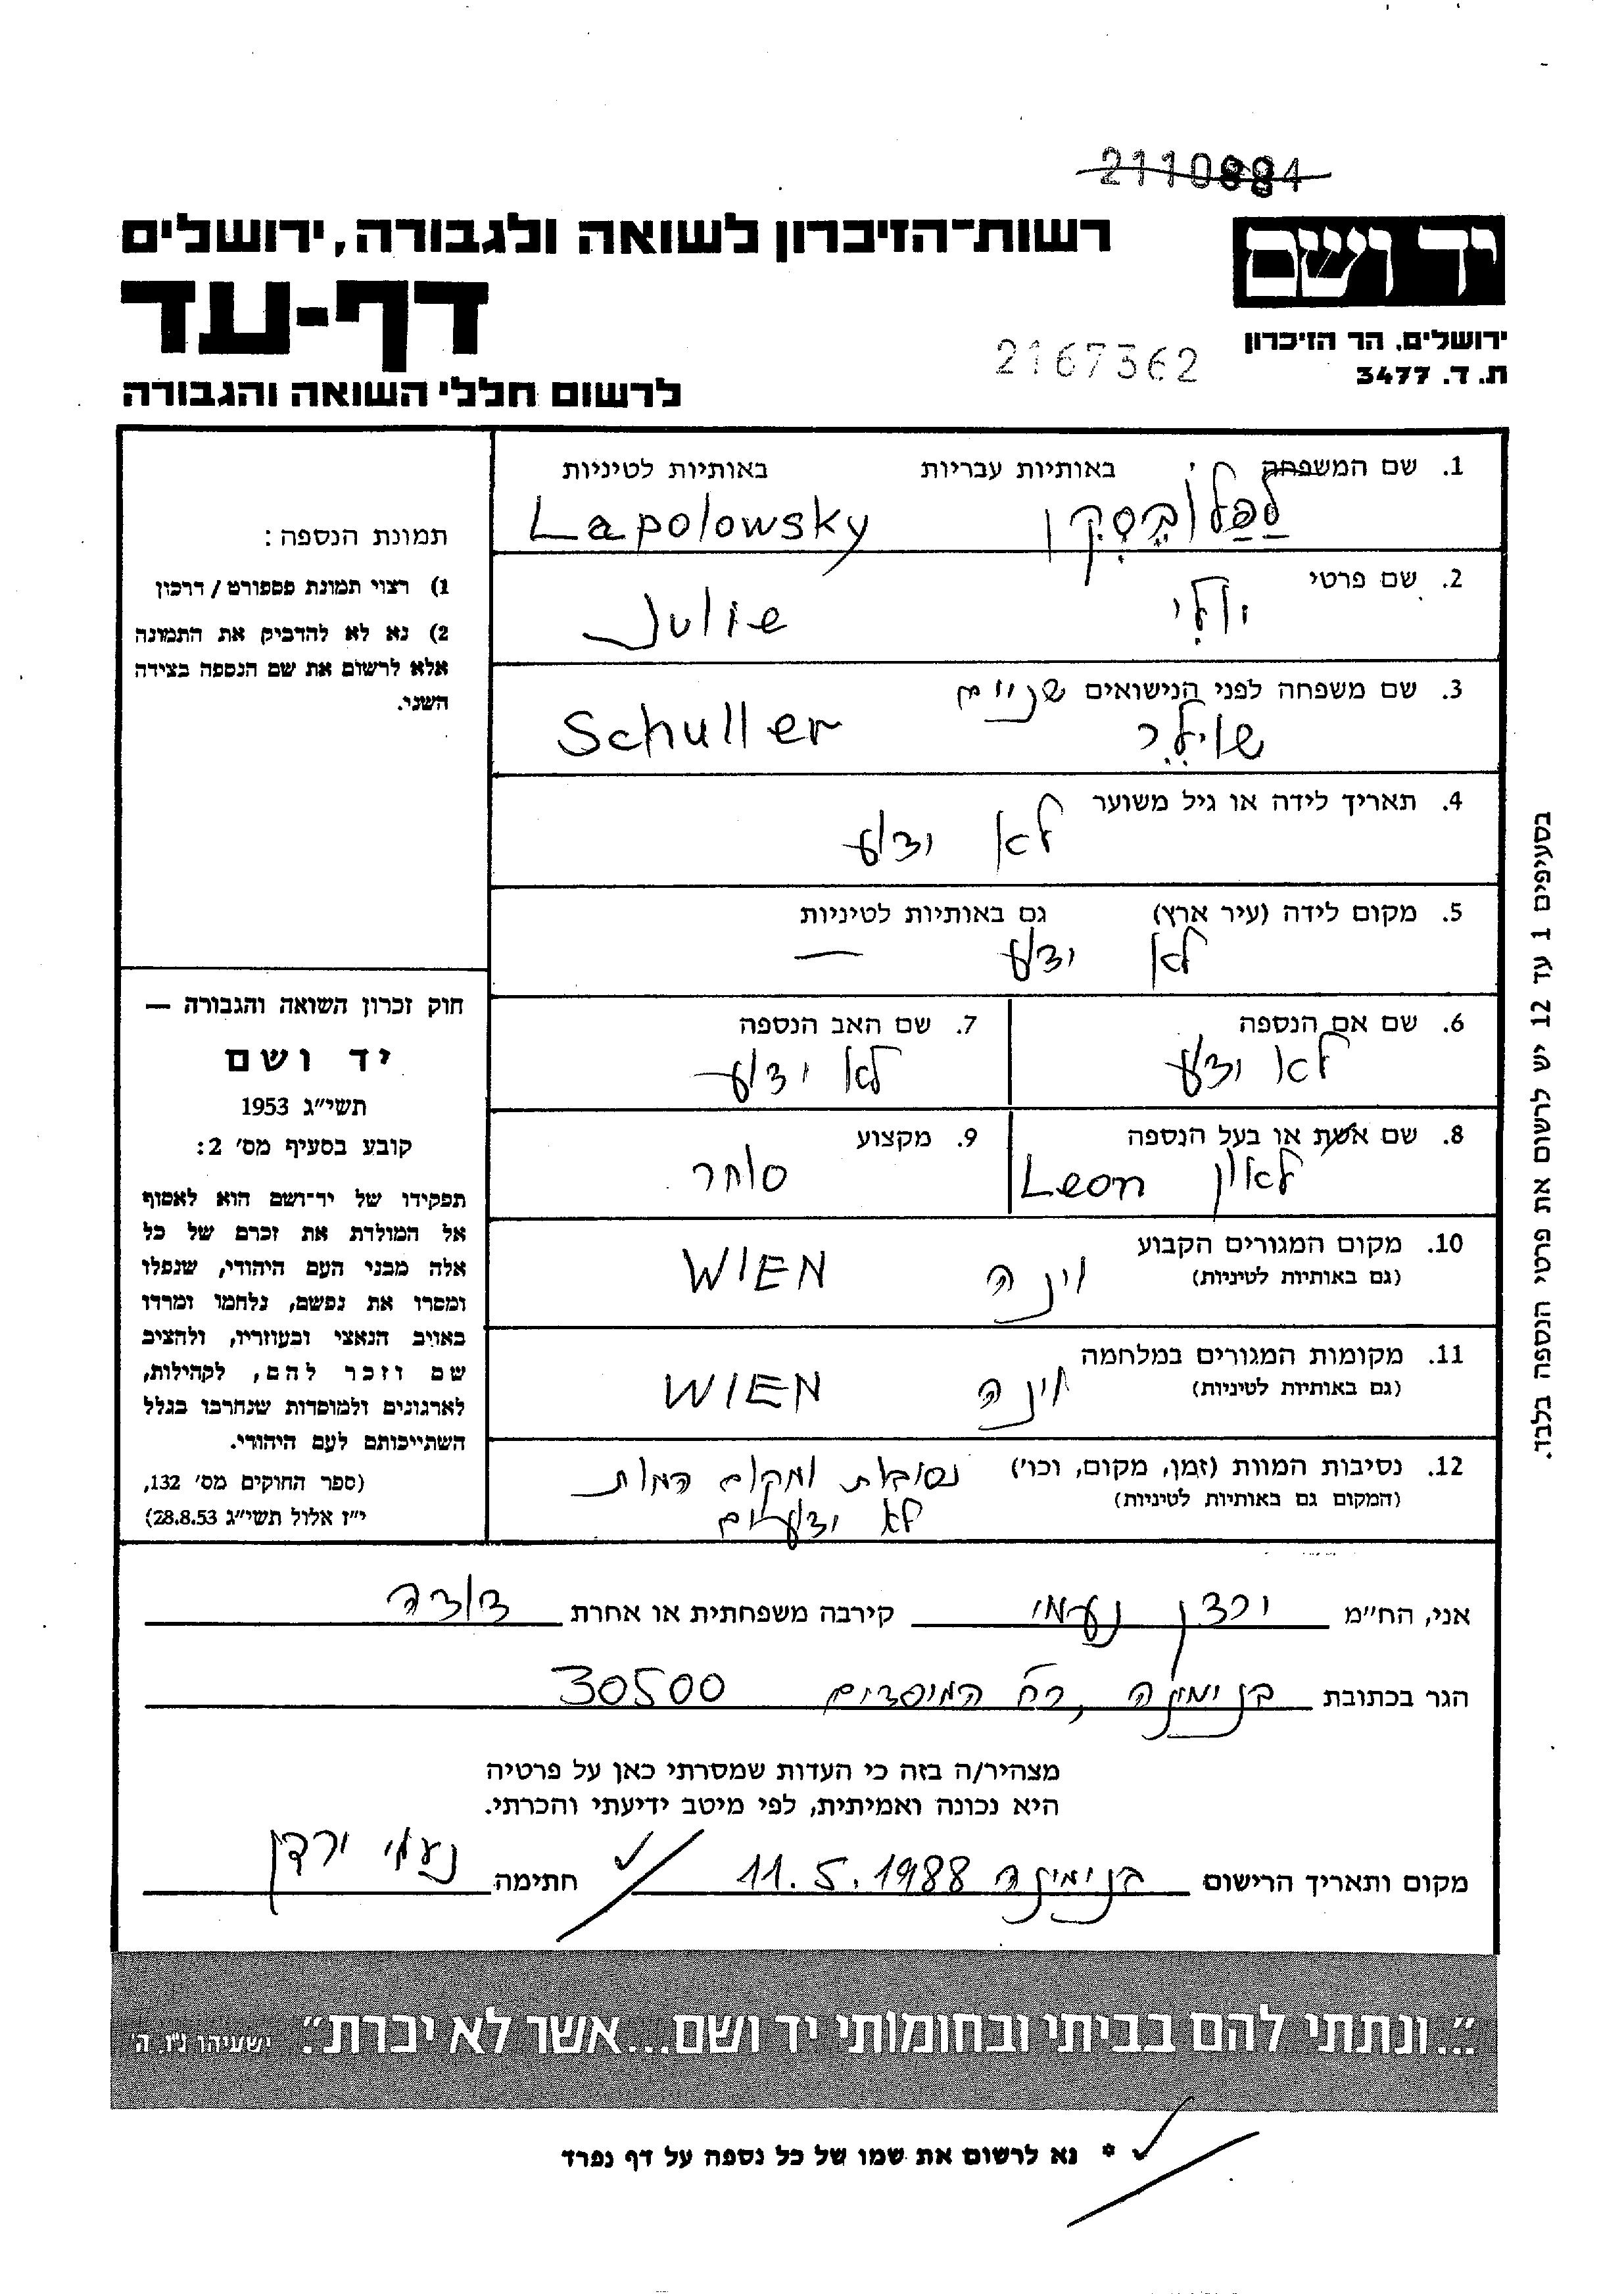 2110884
רשות־הזיכרון לשואה ולגבורה, ירושלים
יד ושם
דף-עד
ירושלים, הר הזיכרון
ת. ד. 3477
2167362
לרשום חללי השואה והגבורה
1. שם המשפחה באותיות עבריות באותיות לטיניות
Lapolowsky
2. שם פרטי
יולי Julie
3. שם משפחה לפני הנישואים שניים
שוילר Schuller
4. תאריך לידה או גיל משוער
לא ידוע
5. מקום לידה (עיר ארץ) גם באותיות לטיניות
לא ידוע —
6. שם אם הנספה
לא ידוע
7. שם האב הנספה
לא ידוע
8. שם אשת או בעל הנספה
לאון Leon
9. מקצוע
סוחר
10. מקום המגורים הקבוע
(גם באותיות לטיניות)
וינה WIEN
11. מקומות המגורים במלחמה
(גם באותיות לטיניות)
וינה WIEN
12. נסיבות המוות (זמן, מקום, וכו') נסיבות ומקום המות
(המקום גם באותיות לטיניות) לא ידועים
תמונת הנספה:
1) רצוי תמונת פספורט / דרכון
2) נא לא להדביק את התמונה
אלא לרשום את שם הנספה בצידה
השני.
חוק זכרון השואה והגבורה —
יד ושם
תשי"ג 1953
קובע בסעיף מס' 2:
תפקידו של יד־ושם הוא לאסוף
אל המולדת את זכרם של כל
אלה מבני העם היהודי, שנפלו
ומסרו את נפשם, נלחמו ומרדו
באויב הנאצי ובעוזריו, ולהציב
שם וזכר להם, לקהילות,
לארגונים ולמוסדות שנחרבו בגלל
השתייכותם לעם היהודי.
(ספר החוקים מס' 132,
י"ז אלול תשי"ג 28.8.53)
בסעיפים 1 עד 12 יש לרשום את פרטי הנספה בלבד.
אני, הח"מ ורדן נעמי קירבה משפחתית או אחרת דודה
הגר בכתובת בנימינה, רח' המיסדים 30500
מצהיר/ה בזה כי העדות שמסרתי כאן על פרטיה
היא נכונה ואמיתית, לפי מיטב ידיעתי והכרתי.
מקום ותאריך הרישום בנימינה 11.5.1988 חתימה נעמי ורדן
"...ונתתי להם בביתי ובחומותי יד ושם...אשר לא יכרת". ישעיהו נ"ו, ה'
* נא לרשום את שמו של כל נספה על דף נפרד